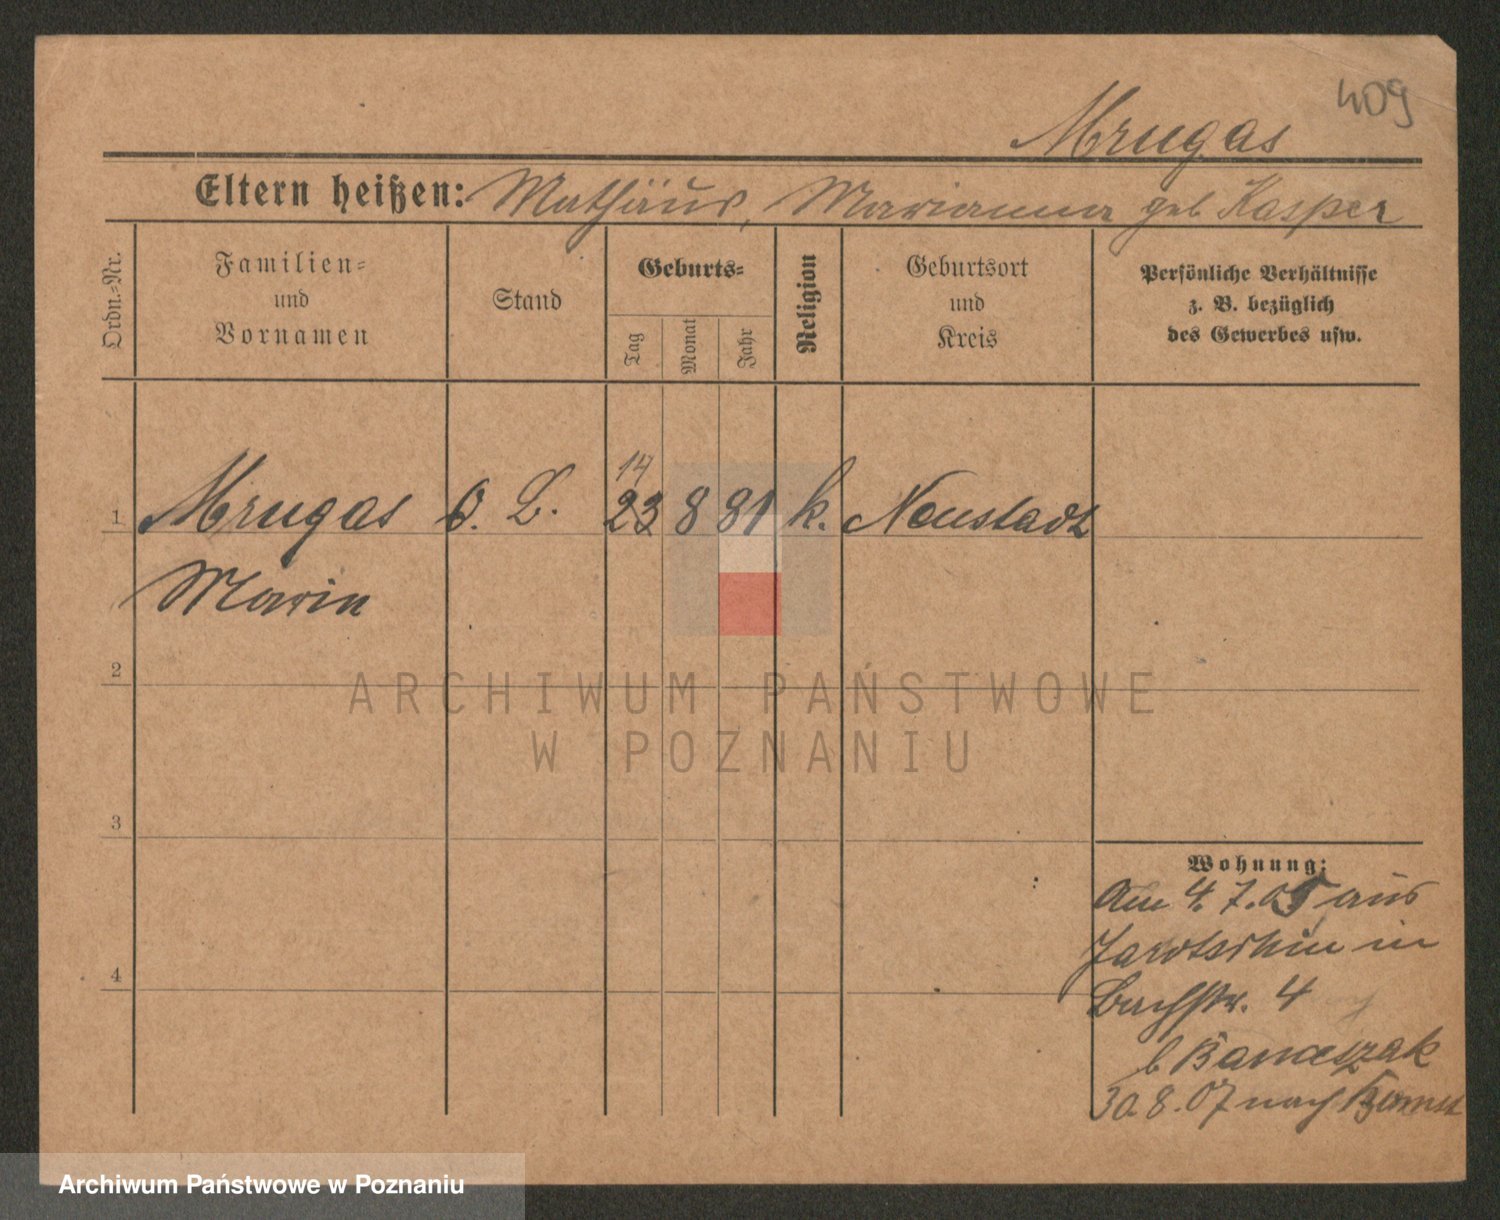 409
Mrugas
Eltern heißen: Mathäus, Marianna geb Kasper
Ordn.-Nr.
Familien-
und
Vornamen
Stand
Geburts-
Tag
Monat
Jahr
Religion
Geburtsort
und
Kreis
Persönliche Verhältnisse
z. B. bezüglich
des Gewerbes usw.
14
1 Mrugas O. L. 23 8 81 k. Neustadt
Marin
2
ARCHIWUM PAŃSTWOWE
W POZNANIU
3
Wohnung:
Am 4. 7. 05 aus
Jarotschin in
4
Bachstr. 4
b
30 8. 07 nach
Archiwum Państwowe w Poznaniu